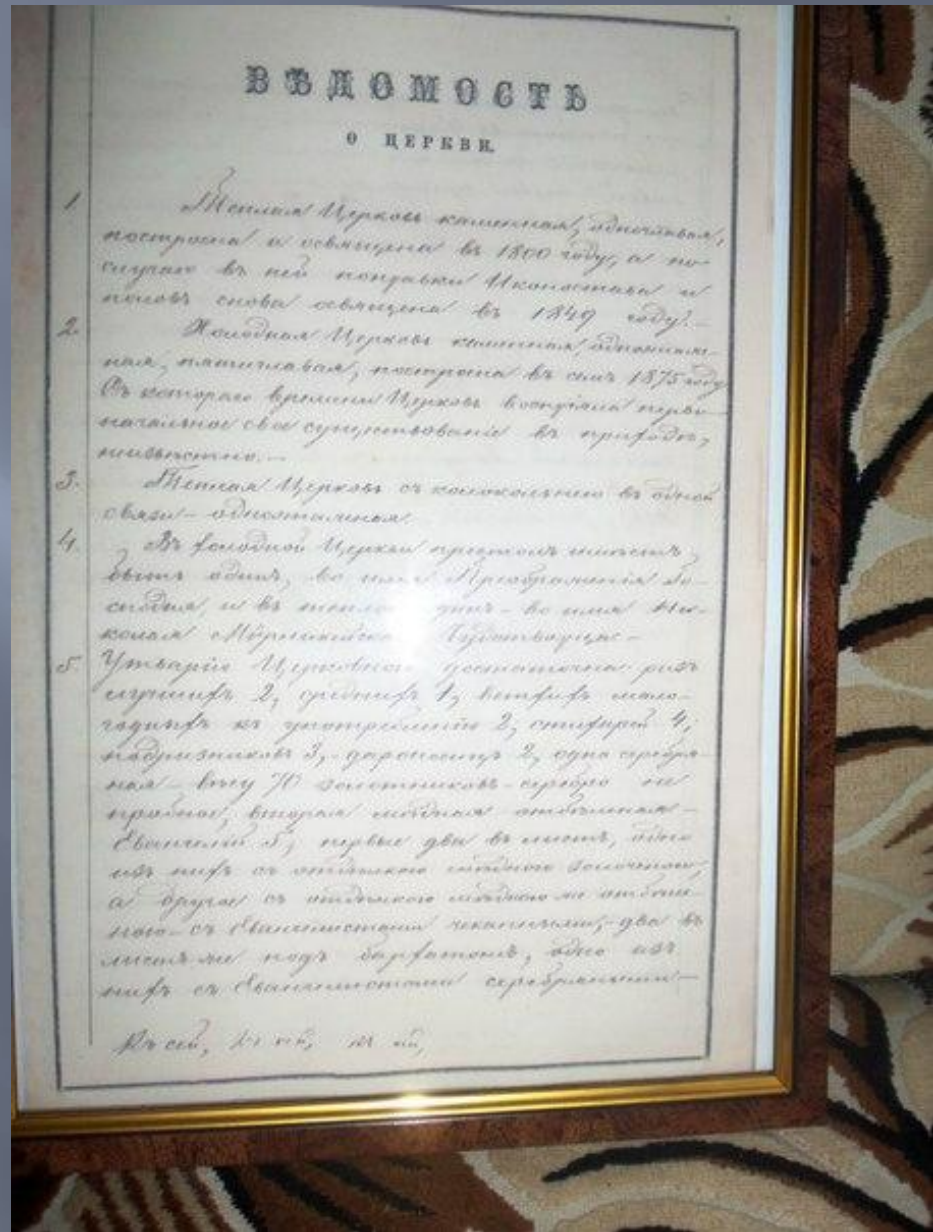 ВѢДОМОСТЬ
О ЦЕРКВИ.
1. Теплая Церковь каменная, одноглавая,
построена и освящена въ 1800 году, а по
случаю въ ней поправки Иконостаса и
половъ снова освящена въ 1849 году.
2. Холодная Церковь каменная, одноэтаж-
ная, пятиглавая, построена въ семъ 1875 году
Съ котораго времени Церковь воспріяла перво-
начальное свое существованіе въ приходѣ,
неизвѣстно.—
3. Теплая Церковь съ колокольнею въ одной
связи – одноэтажная.
4. Въ холодной Церкви престолъ имѣетъ
быть одинъ, во имя Преображенія Го-
сподня, и въ теплой одинъ – во имя Ни-
колая Мѵрликійскаго Чудотворца –
5. Утварію Церковною достаточна: ризъ
лучшихъ 2, среднихъ 1, ветхихъ мало-
годныхъ къ употребленію 2, стихарей 4,
подризниковъ 3, дароносицъ 2, одна серебря-
ная – вѣсу 70 золотниковъ – серебро не
пробное, вторая мѣдная
Евангелій 5, первые два въ листъ, одно
изъ нихъ съ мѣдною золоченою,
а другое съ мѣдною не
съ Евангелистами чеканными, – два въ
листъ же подъ бархатомъ, одно изъ
нихъ съ Евангелистами серебряными –